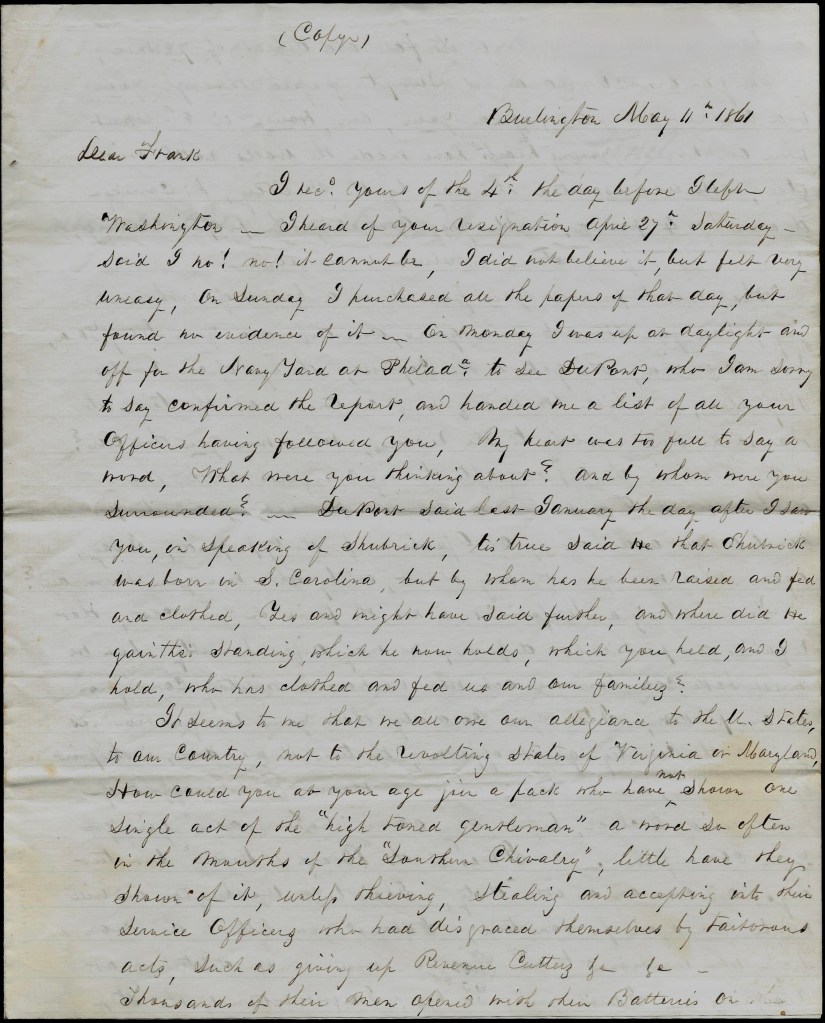 (Copy)
Burlington May 11th 1861
Dear Frank
I recd. yours of the 4th. the day before I left
Washington — I heard of your resignation April 27th. Saturday —
said I no! no! it cannot be, I did not believe it, but felt very
uneasy, On Sunday I purchased all the papers of that day, but
found no evidence of it — On Monday I was up at daylight and
off for the Navy Yard at Philada. to see DuPont, who I am sorry
to say confirmed the report, and handed me a list of all your
Officers having followed you, My heart was too full to say a
word, What were you thinking about? and by whom were you
surrounded? — DuPont said last January the day after I saw
you, in speaking of Shubrick, tis true said He that Shubrick
was born in S. Carolina, but by whom has he been raised and fed
and clothed, Yes and might have said further, and where did He
gain the standing, which he now holds, which you held, and I
hold, who has clothed and fed us and our families?
It seems to me that we all owe our allegiance to the U. States,
to our Country, not to the revolting States of Virginia or Maryland,
How could you at your age join a pack who have not shown one
single act of the "high toned gentleman" a word so often
in the mouths of the "Southern Chivalry", little have they
shown of it, unless thieving, stealing and accepting into their
service Officers who had disgraced themselves by taitorous
acts, such as giving up Revenue Cutters &c &c —
Thousands of their men opened with their Batteries on